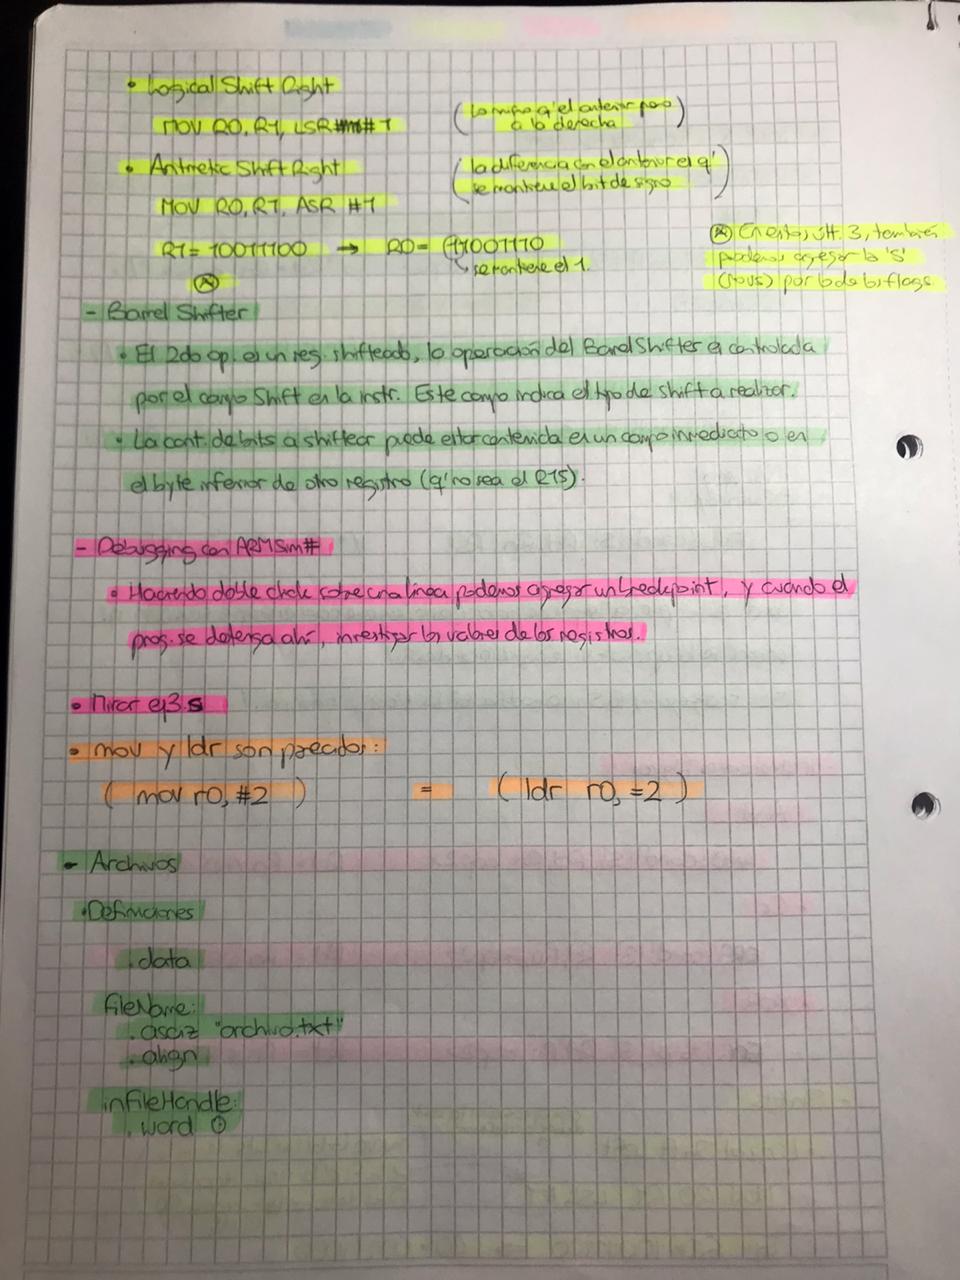 • Logical Shift Right
MOV R0, R1, LSR #1 (Lo mismo q' el anterior pero
a la derecha)
• Aritmetic Shift Right (la diferencia con el anterior es q'
se mantiene el bit de signo)
MOV R0, R1, ASR #1
R1 = 10011100 → R0 = 11001110
↳ se mantiene el 1.
* En estos, sH. 3, también
podemos agregar la 'S'
(movs) por lo de los flags.
*
- Barrel Shifter
• El 2do op. es un reg. shifteado, la operación del Barrel Shifter es controlada
por el campo Shift en la instr. Este campo indica el tipo de shift a realizar.
• La cant. de bits a shiftear puede estar contenida en un campo inmediato o en
el byte inferior de otro registro (q' no sea el R15).
- Debugging con ARMSim#
• Haciendo doble click sobre una línea podemos agregar un breakpoint, y cuando el
prog. se detenga ahí, investigar los valores de los registros.
• Mirar ej3.s
• mov y ldr son parecidos:
( mov r0, #2 ) = ( ldr r0, =2 )
- Archivos
• Definiciones
.data
fileName:
.asciz "archivo.txt"
.align
inFileHandle:
.word 0